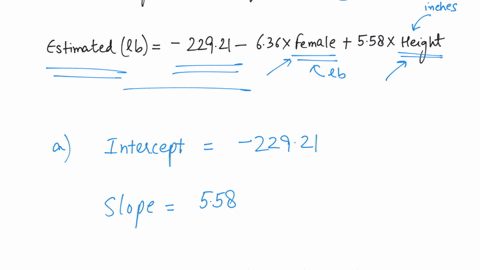 inches
Estimated (lb) = - 229.21 - 6.36 x Female + 5.58 x Height
lb
a) Intercept = -229.21
Slope = 5.58